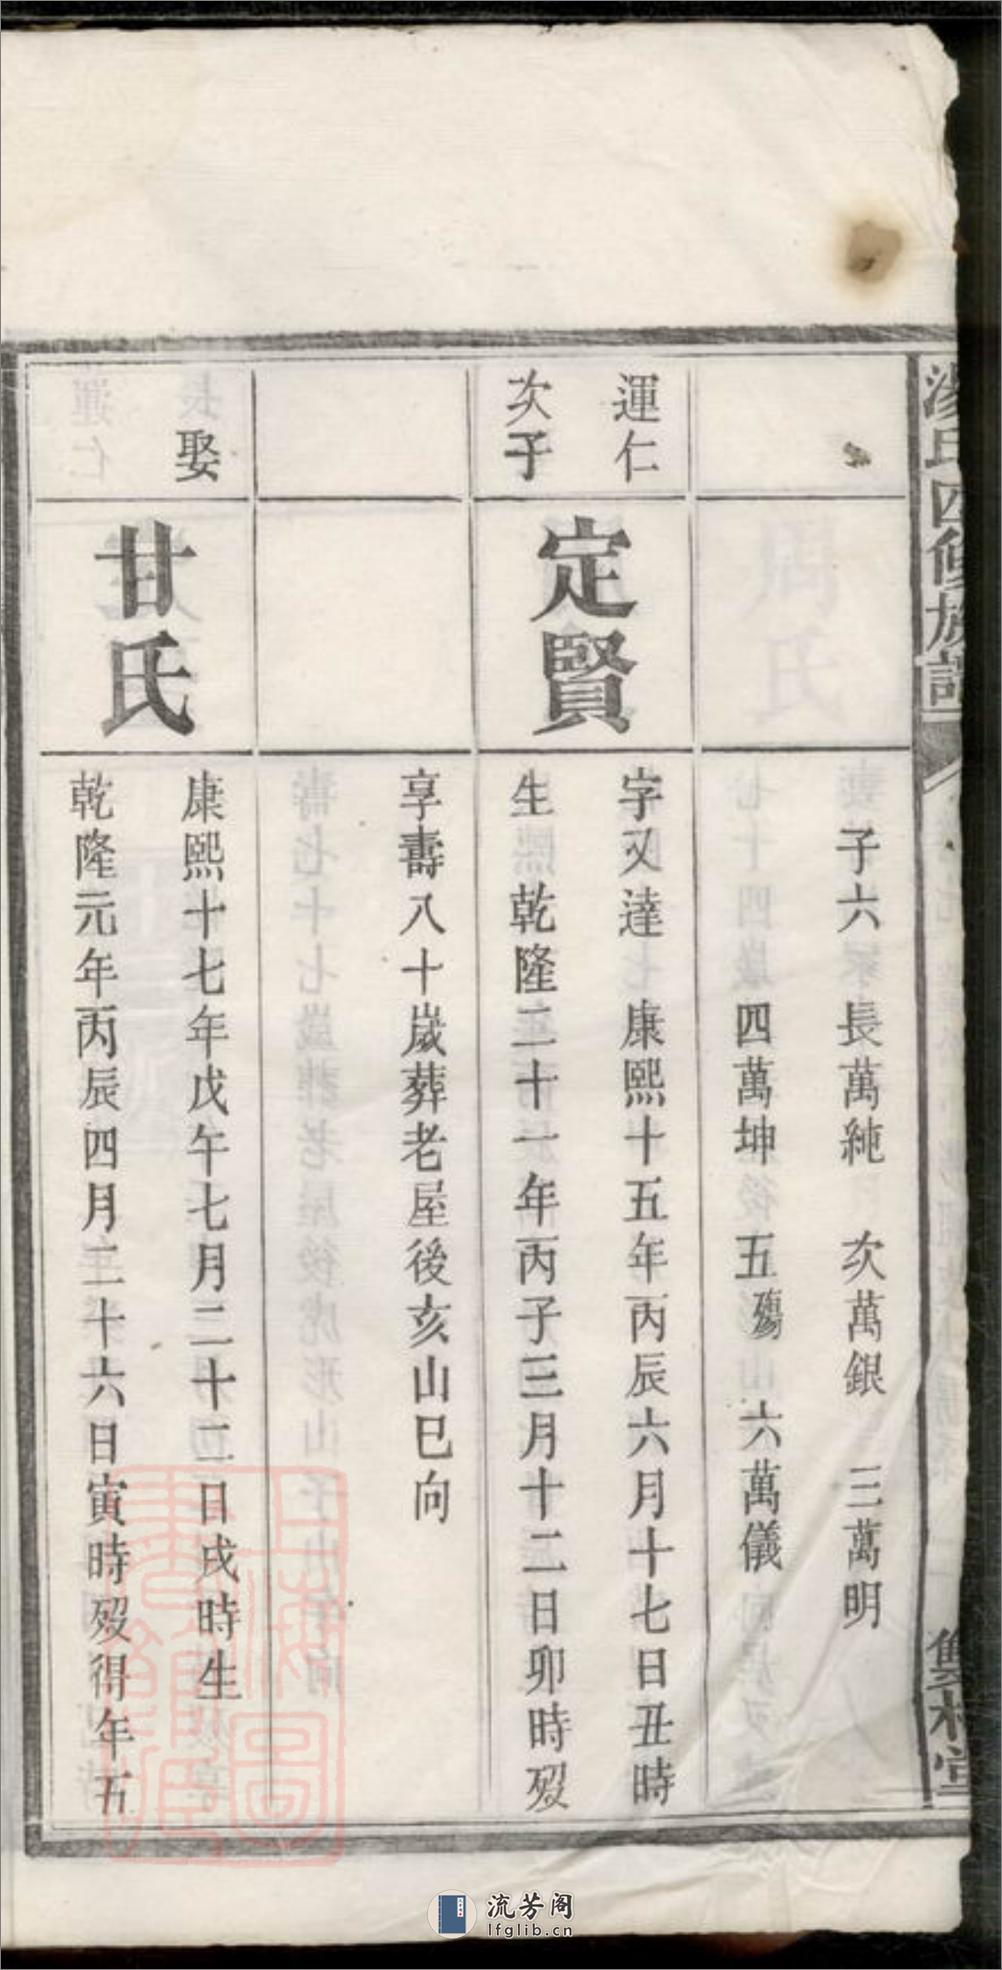 湯氏四修族譜
雙桂堂
子六 長萬純 次萬銀 三萬明
四萬坤 五殤 六萬儀
運仁
次子
定賢
字又達 康熙十五年丙辰六月十七日丑時
生 乾隆二十一年丙子三月十二日卯時歿
享壽八十歲葬老屋後亥山巳向
娶
甘氏
康熙十七年戊午七月二十二日戌時生
乾隆元年丙辰四月二十六日寅時歿得年五
上海圖書館藏
流芳阁
lfglib.cn